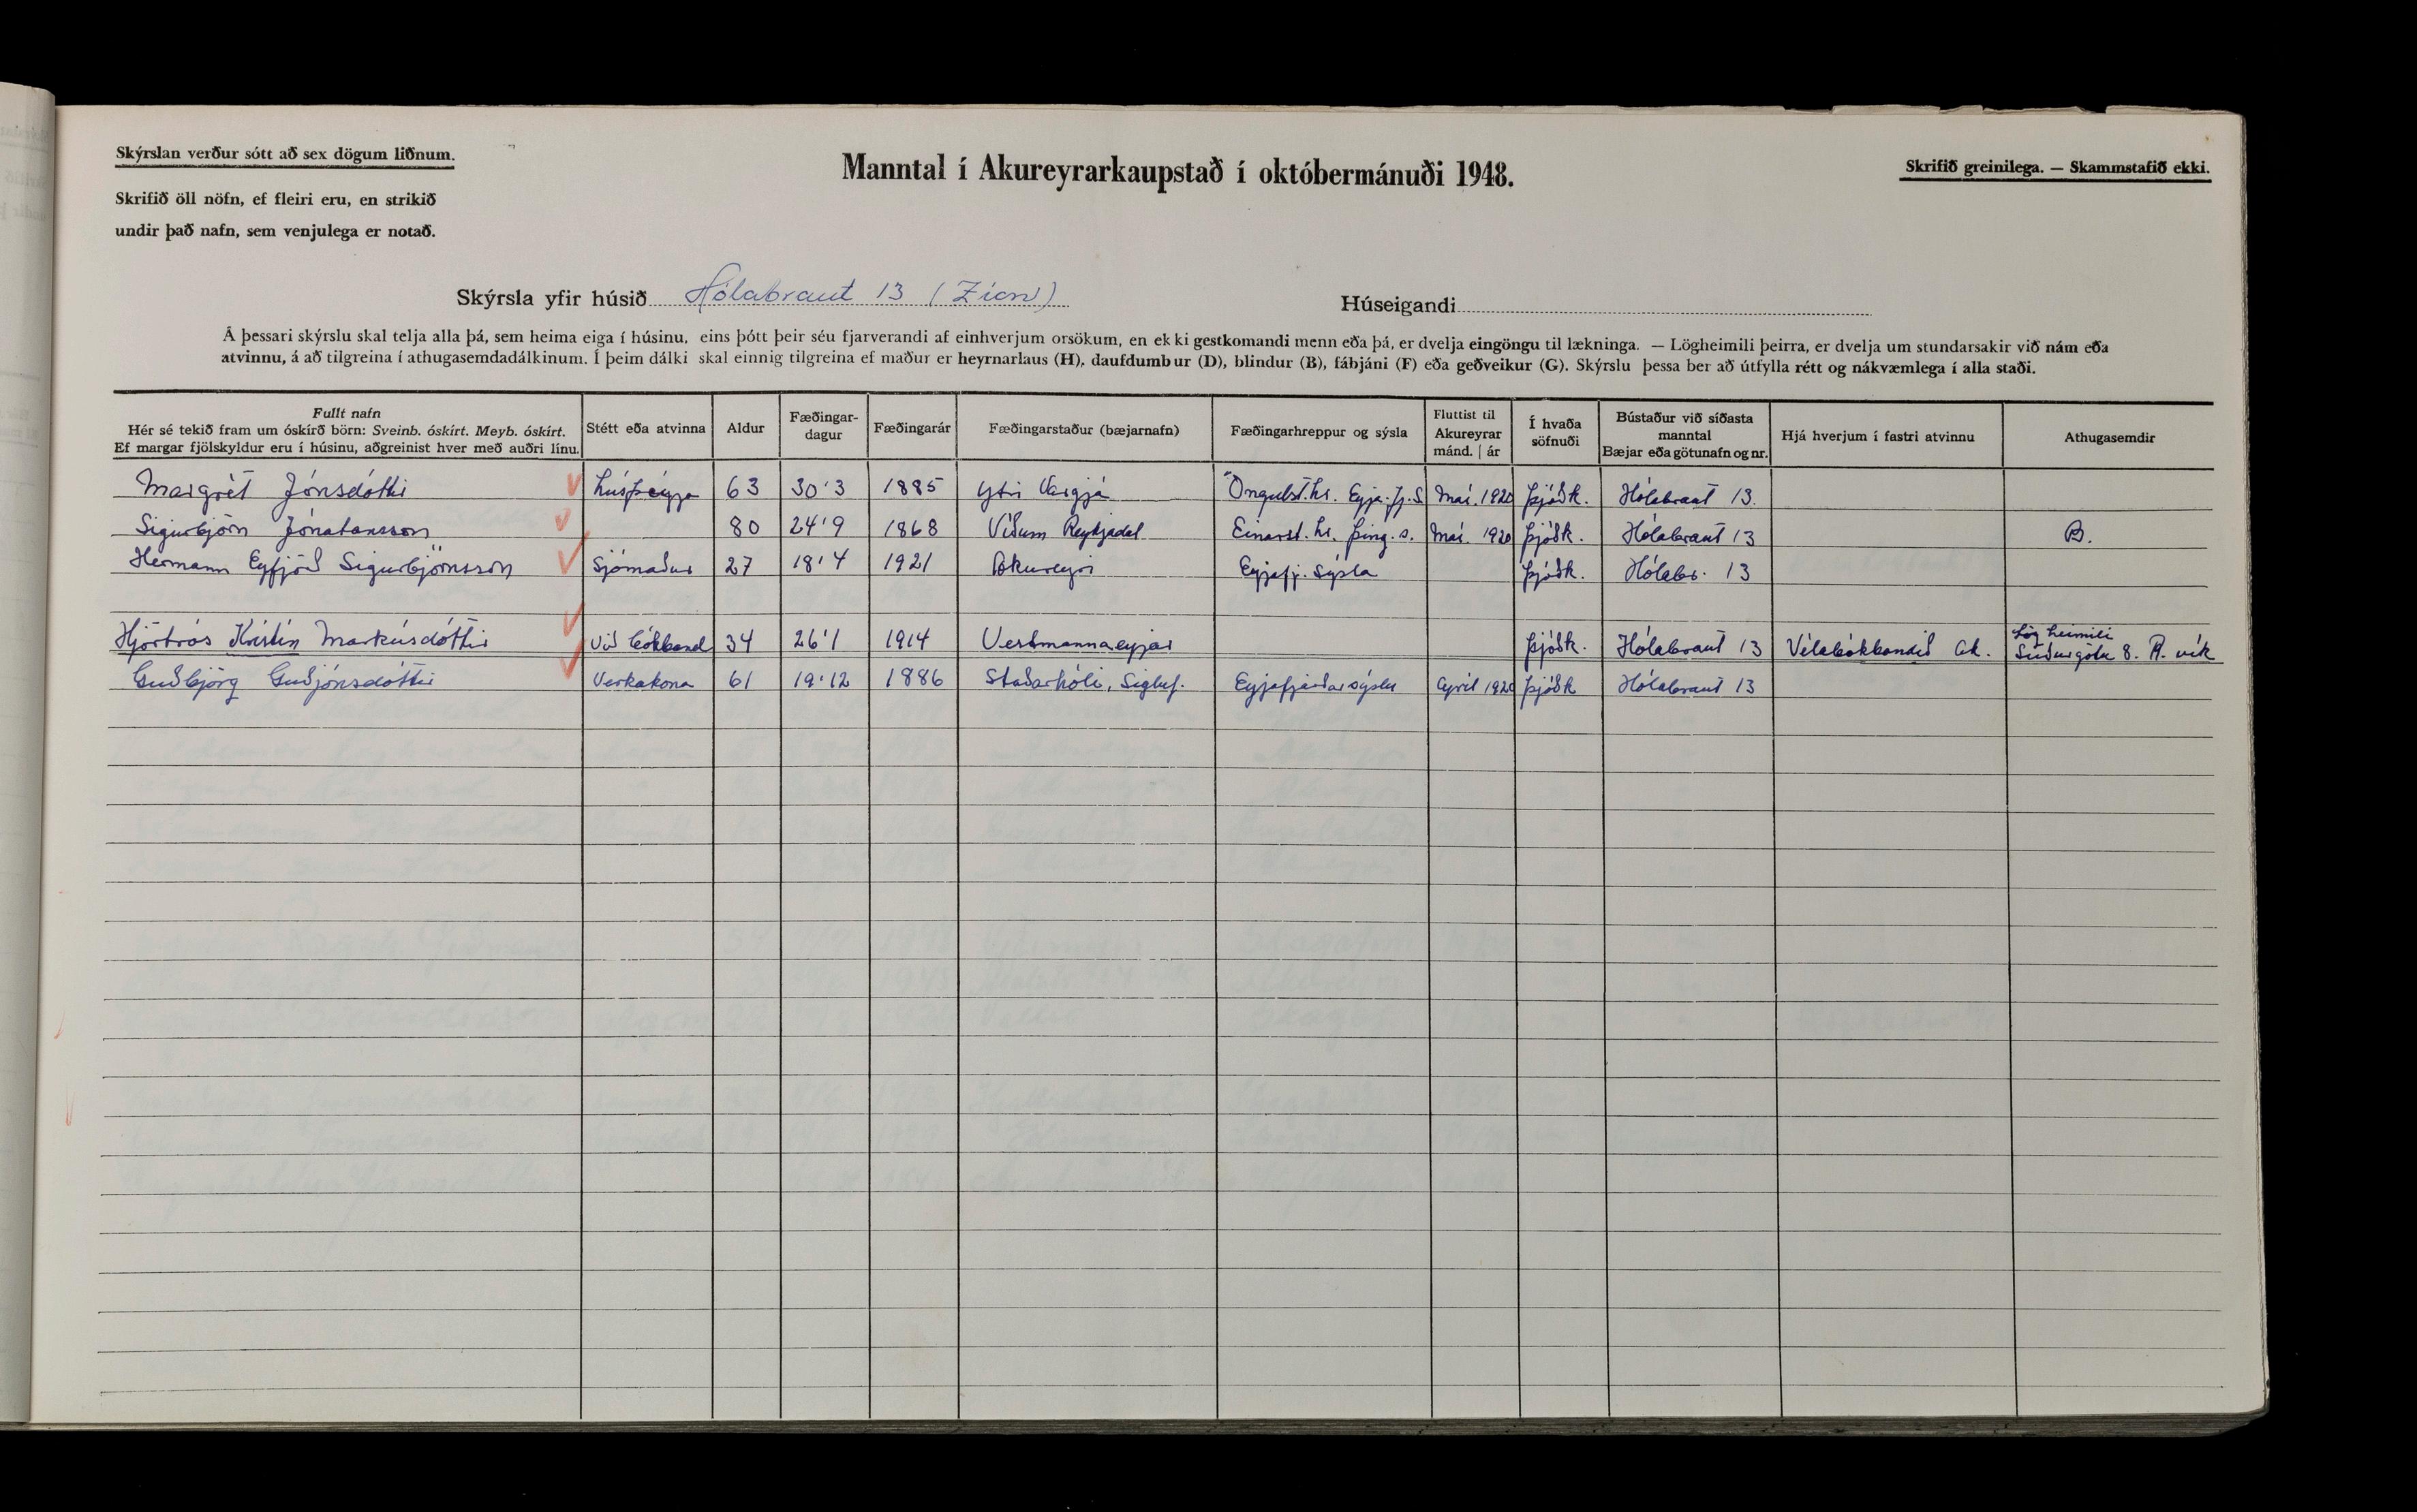 Skýrslan verður sótt að sex dögum liðnum.
Skrifið öll nöfn, ef fleiri eru, en strikið
undir það nafn, sem venjulega er notað.
Manntal í Akureyrarkaupstað í októbermánuði 1948.
Skrifið greinilega. — Skammstafið ekki.
Skýrsla yfir húsið Hólabraut 13 (Zion)
Húseigandi
Á þessari skýrslu skal telja alla þá, sem heima eiga í húsinu, eins þótt þeir séu fjarverandi af einhverjum orsökum, en ekki gestkomandi menn eða þá, er dvelja eingöngu til lækninga. — Lögheimili þeirra, er dvelja um stundarsakir við nám eða
atvinnu, á að tilgreina í athugasemdadálkinum. Í þeim dálki skal einnig tilgreina ef maður er heyrnarlaus (H), daufdumbur (D), blindur (B), fábjáni (F) eða geðveikur (G). Skýrslu þessa ber að útfylla rétt og nákvæmlega í alla staði.
Fullt nafn
Hér sé tekið fram um óskírð börn: Sveinb. óskírt. Meyb. óskírt.
Ef margar fjölskyldur eru í húsinu, aðgreinist hver með auðri línu.
Stétt eða atvinna
Aldur
Fæðingar-
dagur
Fæðingarár
Fæðingarstaður (bæjarnafn)
Fæðingarhreppur og sýsla
Fluttist til
Akureyrar
mánd. | ár
Í hvaða
söfnuði
Bústaður við síðasta
manntal
Bæjar eða götunafn og nr.
Hjá hverjum í fastri atvinnu
Athugasemdir
Margrét Jónsdóttir 63 30'3 1885 Ytri Varðgjá Öngulst.hr. Eyja.fj.s. Maí. 1920 Þjóðk. Hólabraut 13.
Sigurbjörn Jónatansson 80 24'9 1868 Víðum Reykjadal Einarst. hr. Þing. s. Maí. 1920 Þjóðk. Hólabraut 13 B.
Hermann Eyfjörð Sigurbjörnsson Sjómaður 27 18'4 1921 Akureyri Eyjafj. sýsla Þjóðk. Hólabr. 13
Hjörtrós Kristín Markúsdóttir Við bókband 34 26'1 1914 Vestmannaeyjar Þjóðk. Hólabraut 13 Vélabókbandið Ak. Lögheimili
Suðurgötu 8. R.vík
Guðbjörg Guðjónsdóttir Verkakona 61 19'12 1886 Staðarhóli, Sigluf. Eyjafjarðarsýslu Apríl 1920 Þjóðk Hólabraut 13